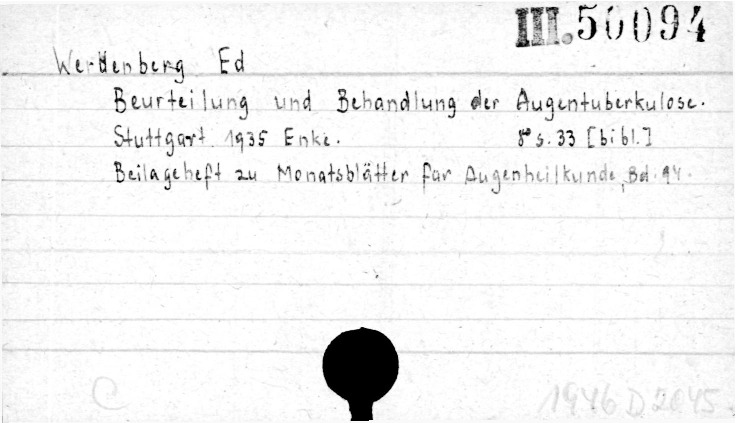 III. 50094
Werdenberg Ed
Beurteilung und Behandlung der Augentuberkulose.
Stuttgart 1935 Enke. 8° s. 33 [bibl.]
Beilageheft zu Monatsblätter für Augenheilkunde, Bd. 94.
C 1946 D 2045